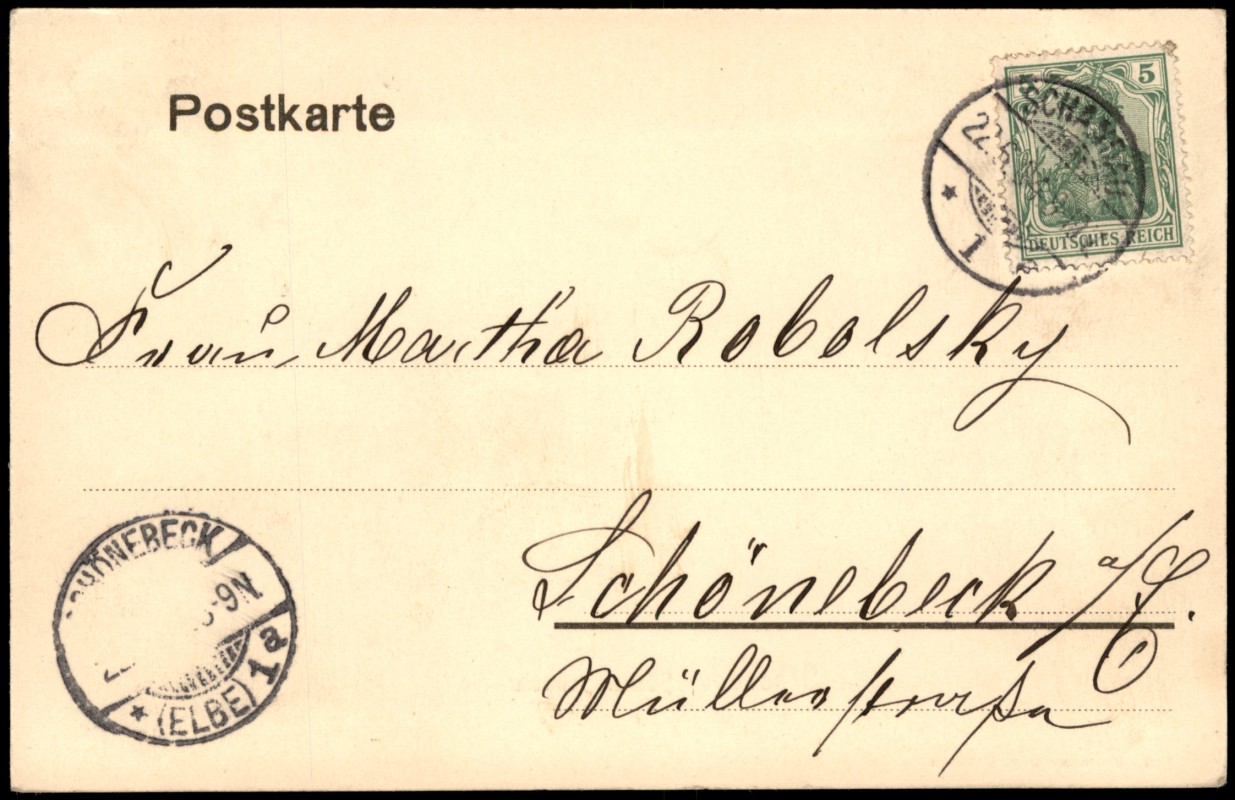 Postkarte
5
DEUTSCHES REICH
SCHANDAU
22.6.
* 1
Frau Martha Robolsky
Schönebeck a/E.
Müllerstraße
SCHÖNEBECK
9N
* (ELBE) 1a